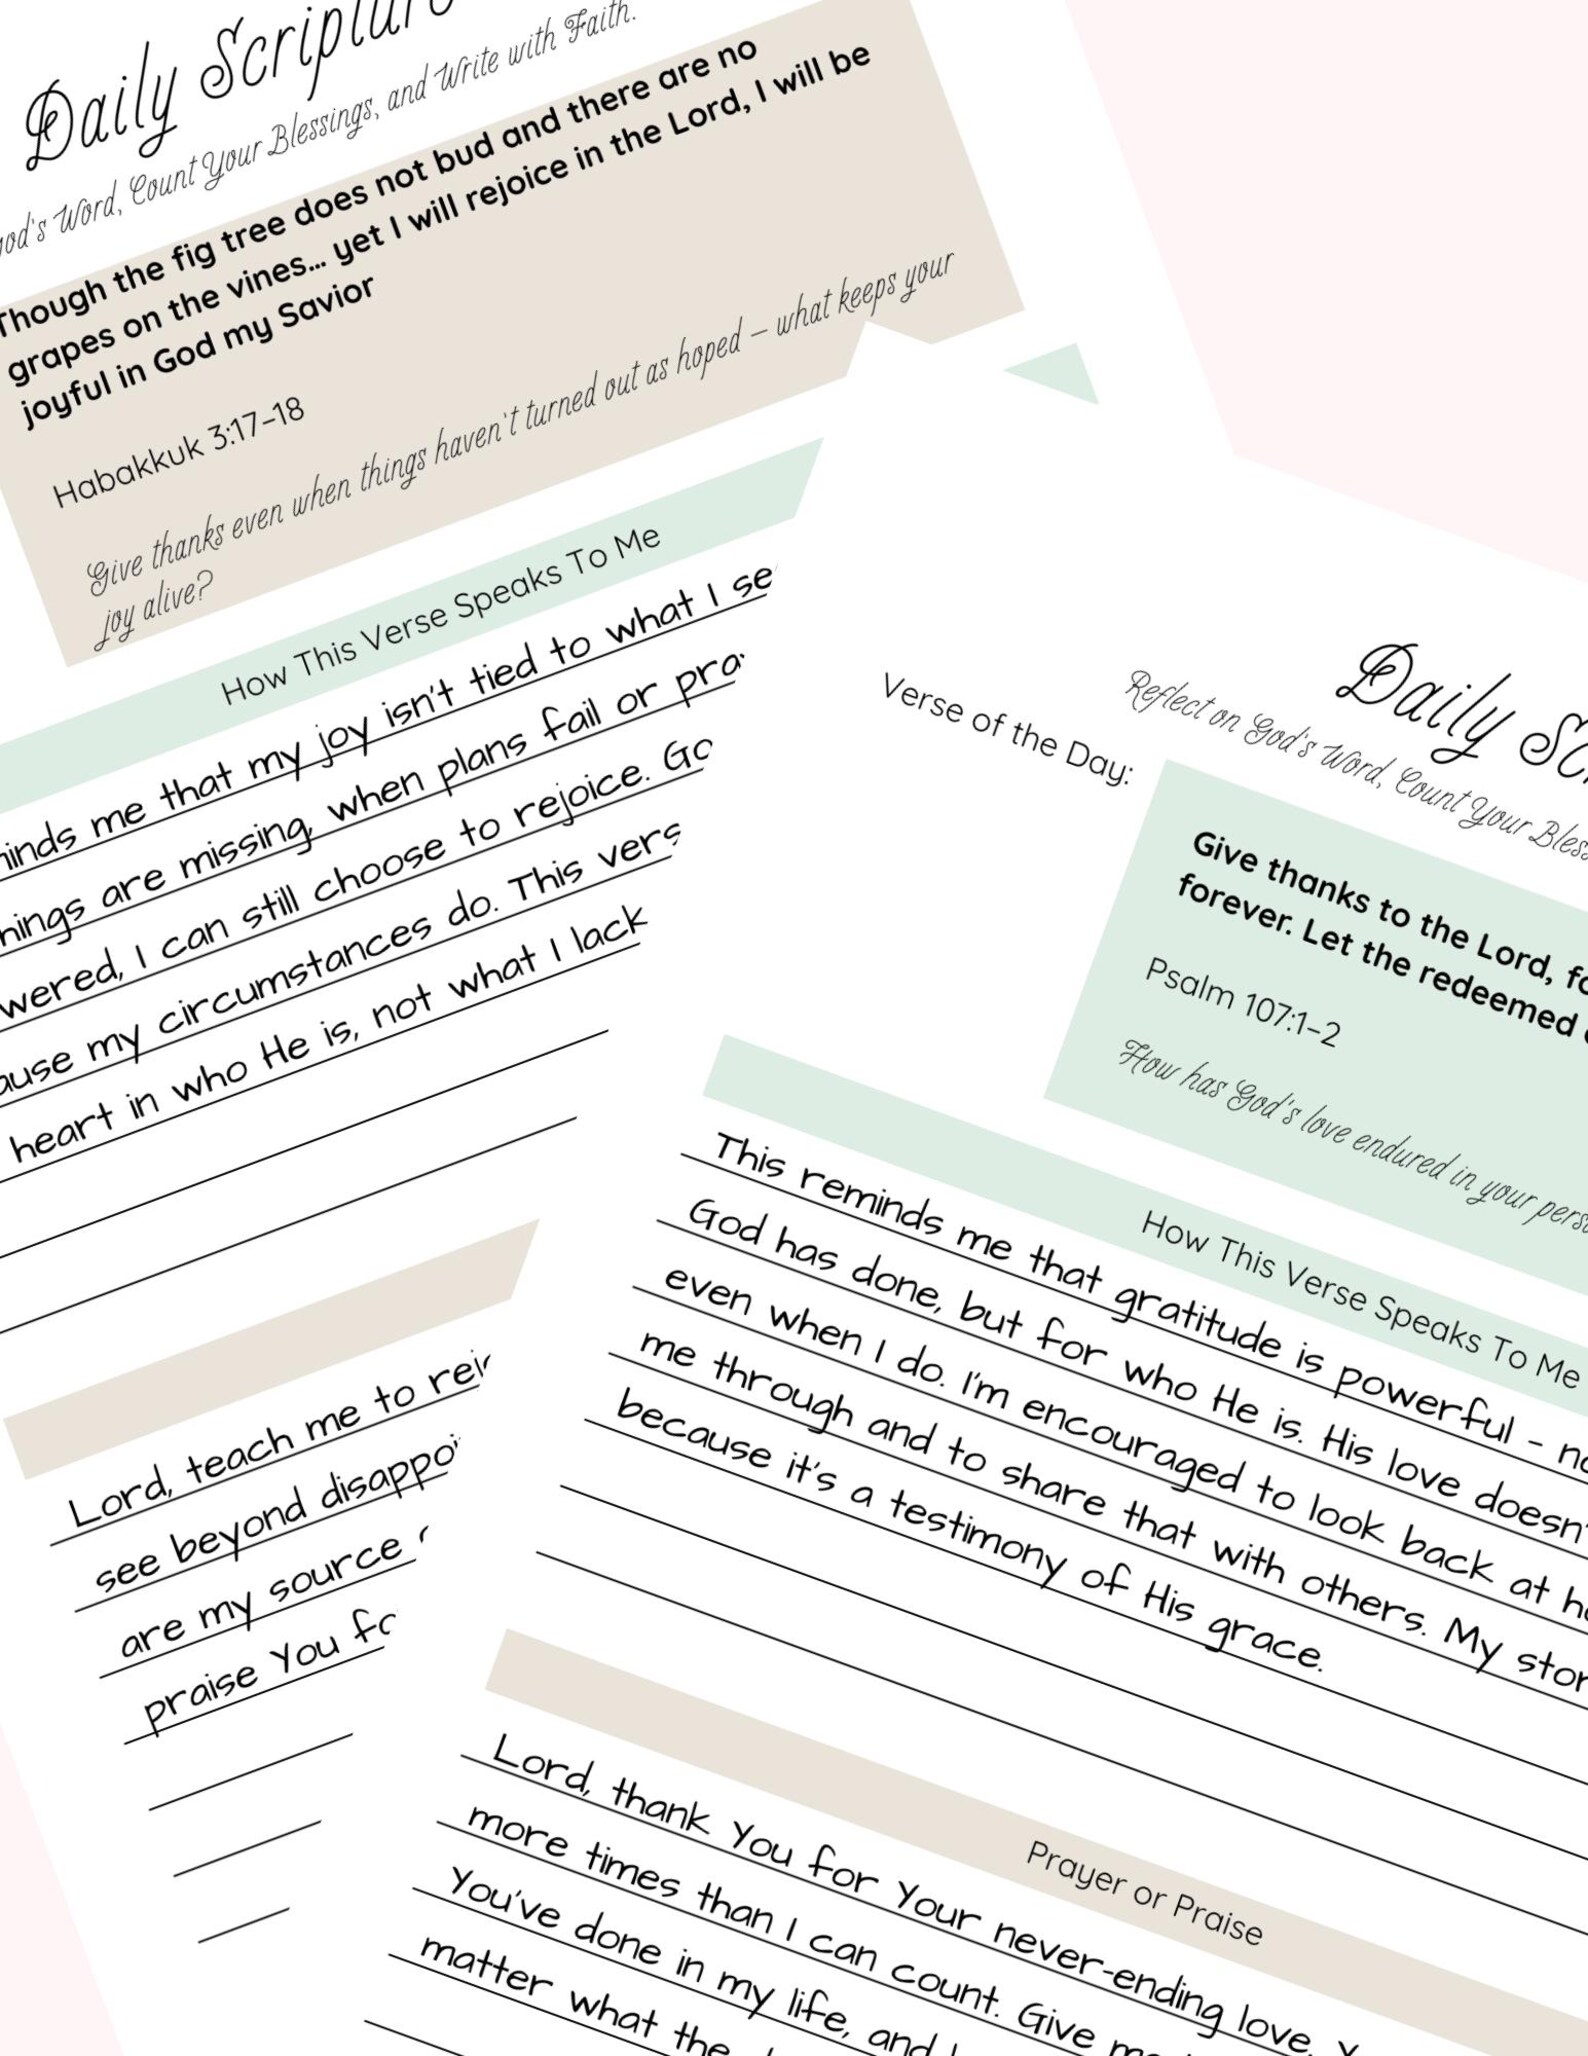 Daily
God's Word, Count Your Blessings, and Write with Faith.
Though the fig tree does not bud and there are no
grapes on the vines... yet I will rejoice in the Lord, I will be
joyful in God my Savior
Habakkuk 3:17-18
Give thanks even when things haven't turned out as hoped – what keeps your
joy alive?
How This Verse Speaks To Me
me that my joy isn't tied to what I
are missing, when plans fail or
I can still choose to rejoice.
my circumstances do. This
heart in who He is, not what I lack
Lord, teach me to
see beyond
are my source
praise You
Daily
Reflect on God's Word, Count Your
Verse of the Day:
Give thanks to the Lord,
forever. Let the redeemed
Psalm 107:1-2
How has God's love endured in your
How This Verse Speaks To Me
This reminds me that gratitude is powerful -
God has done, but for who He is. His love
even when I do. I'm encouraged to look back at
me through and to share that with others. My
because it's a testimony of His grace.
Prayer or Praise
Lord, thank You for Your never-ending love.
more times than I can count. Give
You've done in my life, and
matter what the